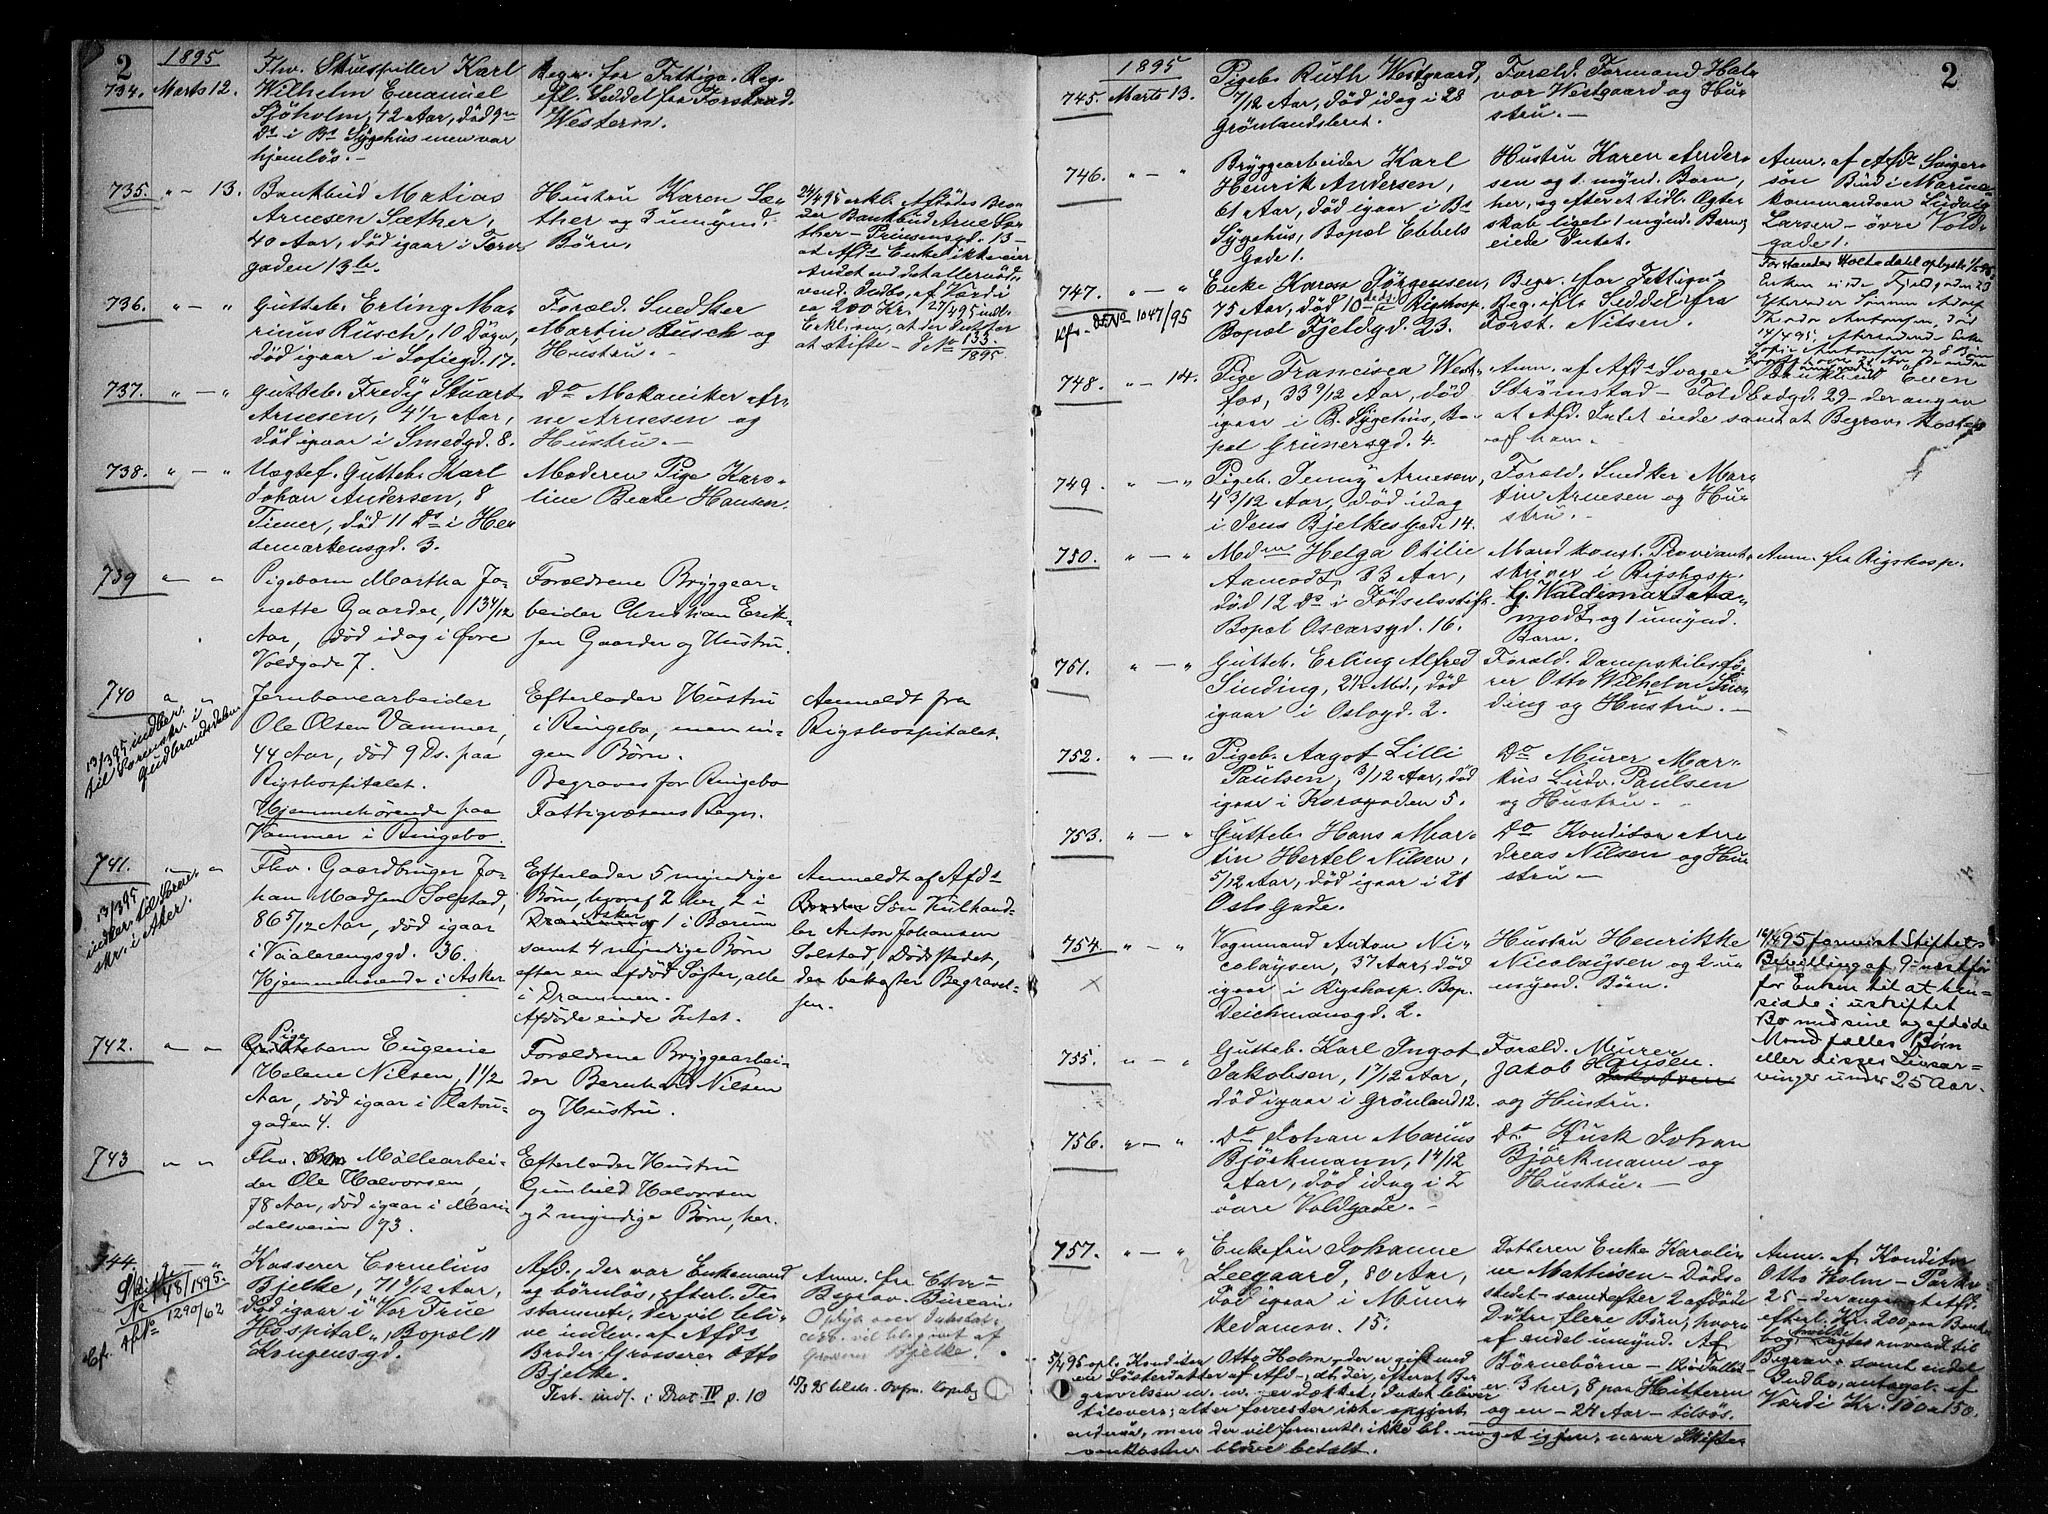 2
1895
734. Marts 12.
Fhv. Skuespiller Karl
Wilhelm Emanuel
Sjöholm, 42 Aar, død 9de
Ds i Bs Sygehus men var
hjemlös.–
Begr. for Fattigv. Reg.
efl. Seddel fra Forstand.
Western.
735. " – 13.
Bankbud Matias
Arnesen Sæther,
40 Aar, død igaar i Torv
gaden 13b.
Hustru Karen Sæ-
ther og 3 umynd.
Börn.
24/4 95 erkl. Afdödes Bro-
der Bankbud Arne Sæ-
ther – Prinsensgd. 13 –
at Afds Enke ikke eier
Andet end det allernöd-
vend. Indbo, af Værdi
ca 200 Kr. 27/4 95 indl.
Erkl. om, at der Intet er
at skifte – J No 133/1895
736. " – "
Gutteb. Erling Ma-
rinus Rusch, 10 Døgn,
död igaar i Sofiegd. 17.
Foræld. Snedker
Martin Rusch og
Hustru.–
737. " – "
Gutteb. Fredy Stuart
Arnesen, 4 1/2 Aar,
död igaar i Smedgd. 8.
Do Mekaniker Ar-
ne Arnesen og
Hustru.–
738. " – "
Uægtef. Gutteb. Karl
Johan Andersen, 8
Timer, död 11 Ds i He-
demarkensgd. 3.
Moderen Pige Karo-
line Beate Hansen.
739 " "
Pigebarn Martha Jo-
nette Gaarder, 1 3 4/12
Aar, död idag i Øvre
Voldgade 7.
Forældrene Bryggear-
beider Christian Erik-
sen Gaarder og Hustru.
740 " "
13/3 95 indber.
til Sorenskr. i
Gudbrandsdalen
Jernbanearbeider
Ole Olsen Vammer,
44 Aar, död 9 Ds. paa
Rigshospitalet.
Hjemmehörende paa
Vammer i Ringebo.
Efterlader Hustru
i Ringebo, men in-
gen Börn.
Begraves for Ringebo
Fattigvæsens Regn.
Anmeldt fra
Rigshospitalet.
741. " "
13/3 95
indber. til Soren-
skr. i Aker.
Fhv. Gaardbruger Jo-
han Madsen Solstad,
86 5/12 Aar, död igaar
i Vaalerengsgd. 36.
Hjemmehörende i Asker
Efterlader 5 myndige
Börn, hvoraf 2 her, 2 i
Asker
Drammen og 1 i Bærum
samt 4 myndige Börn
efter en afdöd Søster, alle
i Drammen.
Afdöde eiede Intet.
Anmeldt af Afds
Sön Kulhand-
ler Anton Johansen
Solstad, Dödsstedet,
der bekoster Begravel-
sen.
742. " "
Pige
barn Eugenie
Helene Nilsen, 1 1/2
Aar, död igaar i Platou-
gaden 4.
Forældrene Bryggearbei-
der Bernhard Nilsen
og Hustru.
743 " "
Fhv. Möllearbei-
der Ole Halvorsen,
78 Aar, död igaar i Mari-
dalsveien 93.
Efterlader Hustru
Gunhild Halvorsen
og 2 myndige Börn, her.
744. " – "
48/1895.
1290/62
Kasserer Cornelius
Bjelke, 71 9/12 Aar,
död igaar i "Vor Frue
Hospital", Bopæl 11
Kongensgd.
Afd., der var Enkemand
og börnlös, efterl. Te-
stamente, der vil bli-
ve indlev. af Afds
Broder Grosserer Otto
Bjelke.
Test. indf. i Prot IV p. 10
Anm. fra Chr.a
Begrav. Bureau.
vil bli givet af
Bjelke.
1895
2
745. Marts 13.
Pigeb. Ruth Westgaard,
7/12 Aar, död idag i 28
Grönlandsleret.
Foræld. Formand Hal-
vor Westgaard og Hu-
stru.–
746. " – "
Bryggearbeider Karl
Henrik Andersen,
61 Aar, död igaar i Bs
Sygehus, Bopæl Ebbels
Gade 1.
Hustru Karen Ander-
sen og 1 mynd. Barn,
her, og efter et tidl. Ægte-
skab ligel. 1 mynd. Barn;
eiede Intet.
Anm. af Afds Sviger-
sön Bud i Marine-
kommandoen Ludvig
Larsen – övre Vold-
gade 1.
747. " – "
Kfr. J No 1047/95
Enke Karen Jörgensen,
75 Aar, död 10 ds. i Rigshosp.
Bopæl Fjeldgd. 23.
Begr. for Fattigv.
Reg. efl. Seddel fra
Forst. Nilsen.
Forstander Holtedahl oplyste
748. " – 14.
Pige Francisca West-
fos, 33 9/12 Aar, död
igaar i B. Sygehus, Bo-
pæl Grünersgd. 4.
Anm. af Afds Svager
Strömstad – Toldbodgd. 29 – der angav
at Afd. Intet eiede samt at Begrav. kostes
af ham.–
749. " – "
Pigeb. Jenny Arnesen,
4 3/12 Aar, död idag
i Jens Bjelkes Gade 14.
Foræld. Snedker Mar-
tin Arnesen og Hu-
stru.–
750. " – "
Mdm Helga Otilie
Aamodt, 33 Aar,
död 12 Ds i Födselsstift.
Bopæl Oscarsgd. 16.
Mand konst. Proviant-
skriver i Rigshosp.
G. Waldimar Aa-
modt, og 1 umynd.
Barn.
Anm. fra Rigshosp.
751. " – "
Gutteb. Erling Alfred
Sinding, 2 1/2 Md., död
igaar i Oslogd. 2.
Foræld. Dampskibsfö-
rer Otto Wilhelm Sin-
ding og Hustru.–
752. " – "
Pigeb. Aagot Lilli
Paulsen, 3/12 Aar, död
igaar i Korsgaden 5.
Do Murer Mar-
kus Ludv. Paulsen
og Hustru.–
753. " – "
Gutteb. Hans Mar-
tin Hertel Nilsen,
5/12 Aar, död igaar i 21
Oslo Gade.
Do Konditor An-
dreas Nilsen og Hu-
stru –
754. " – "
Vognmand Anton Ni-
colaysen, 37 Aar, död
igaar i Rigshosp. Bop.
Deichmansgd. 2.
Hustru Henrikke
Nicolaysen og 2 u-
mynd. Börn.
16/4 95 forevist Stiftets
Bevilling af 9 næstfør
for Enken til at hen-
sidde i uskiftet
Bo med sine og afdöde
Mand fælles Börn
eller disses Livsar-
vinger under 25 Aar.
755. " – "
Gutteb. Karl Ingof
Jakobsen, 1 7/12 Aar,
död igaar i Grönland 12.
Foræld. Murer
Jakob Hansen
og Hustru.
756. " – "
Do Johan Marius
Björkmann, 1 4/12
Aar, död idag i 2
övre Voldgade.–
Do Kusk Johan
Björkmann og
Hustru.–
757. " – "
Enkefru Johanne
Leegaard, 80 Aar,
död igaar i Mun-
kedamsv. 15.
Datteren Enke Karoli-
ne Mathiesen – Döds-
stedet – samt efter 2 afdöde
Dötre flere Börn, hvor-
af endel umynd. Af
Börnebörne –
er 3 her, 8 paa Hitteren
og en – 24 Aar – tilsös.
Anm. af Konditor
Otto Holm – Parkv.
25 – der angav at Afd.
efterl. Kr. 200 paa Bank-
bog, hvilke
Begrav. samt endel
Indbo, antagel. af
Værdi Kr. 100 à 150.
5/4 95 opl. Konditor Otto Holm – der er gift med
en Sösterdatter af Afd –, at der, efterat Be-
gravelsen m. m. er dækket, Intet bliver
tilovers; alter forrester ikke opgjort
endnu, men der vil formentl. ikke bl. noget igjen, naar Skifte-
omkostn. blive betalt.